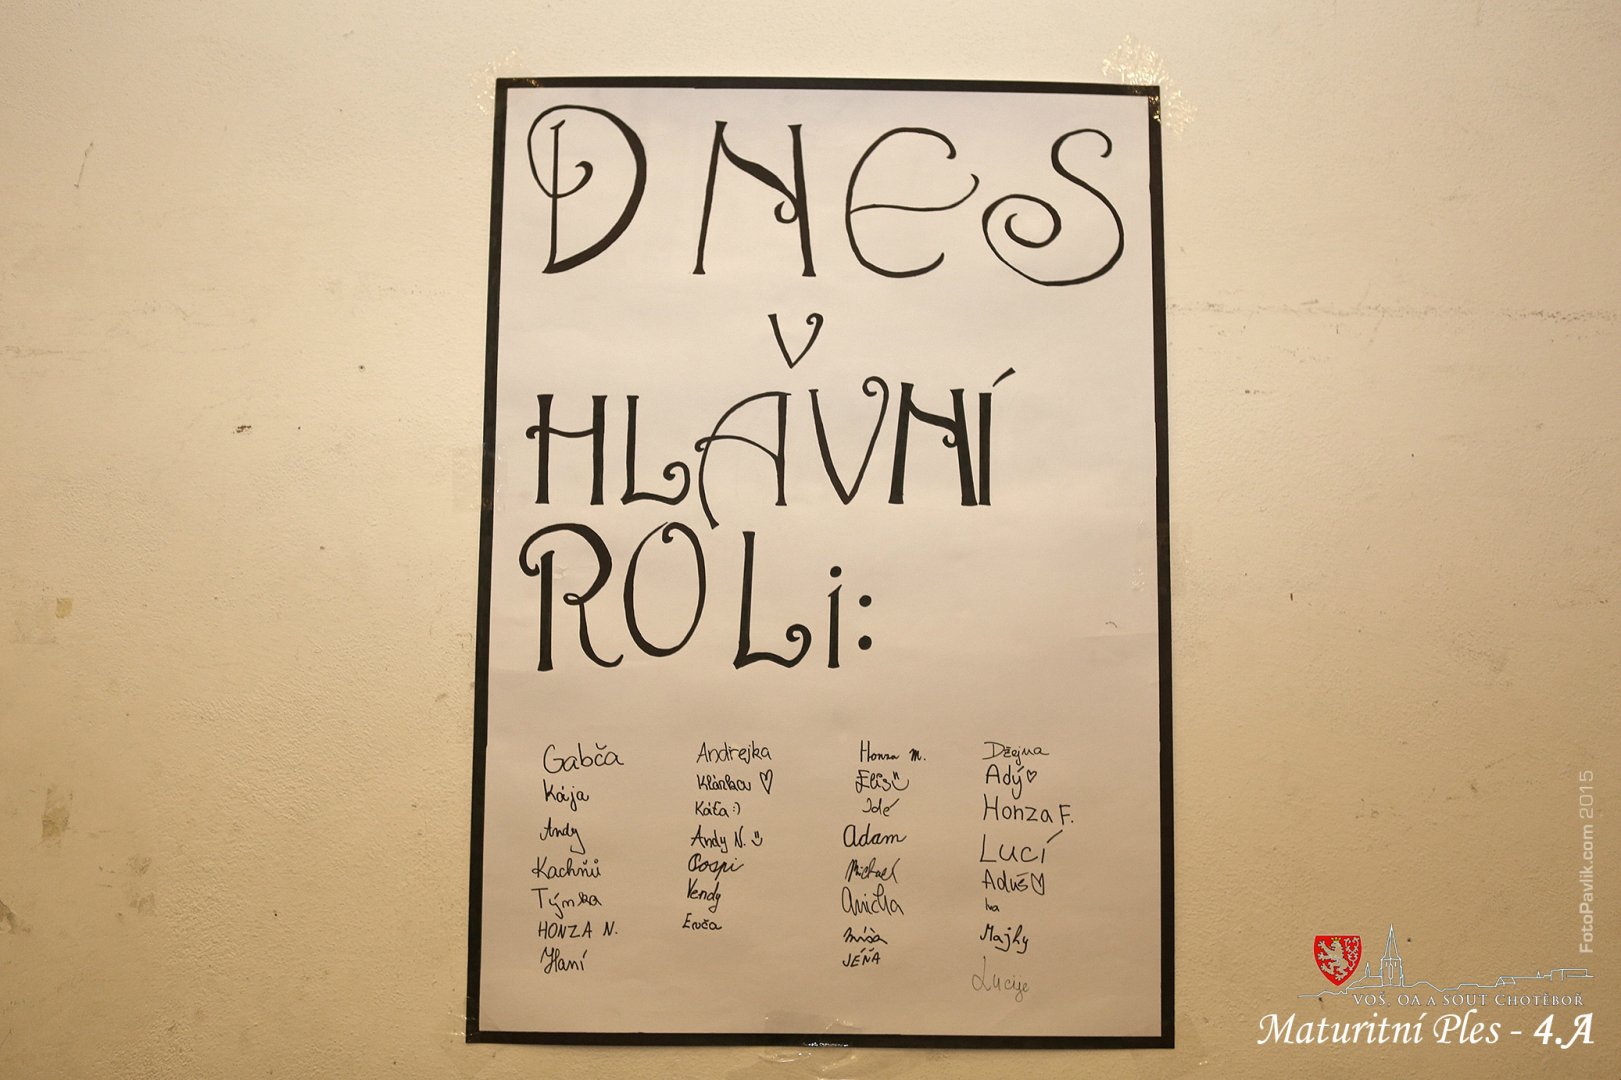 DNES
v
HLAVNÍ
ROLi:
Gabča
Kája
Andy
Kachňů
Týnka
HONZA N.
Haní
Andrejka
Klárka
Káťa :)
Andy N.
Vendy
Honza M.
Elis
Adam
Michael
Anička
Míša
JÉŇA
Adý
Honza F.
LUCÍ
Aduš
Iva
Majky
Lucije
FotoPavlik.com 2015
VOŠ, OA A SOUT CHOTĚBOŘ
Maturitní Ples - 4.A